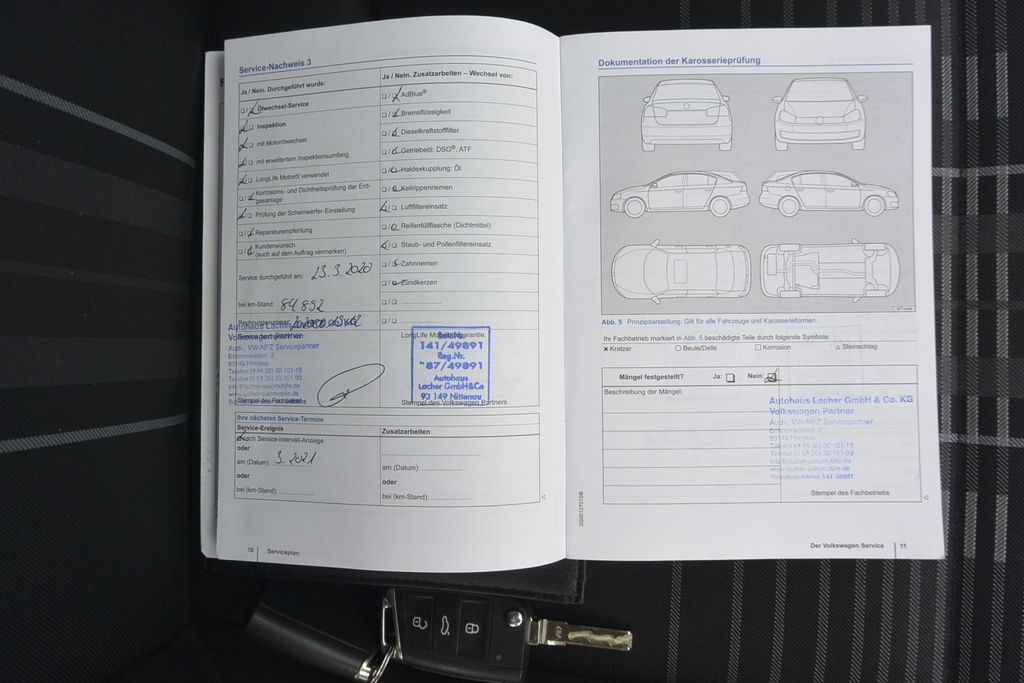 Service-Nachweis 3
Ja / Nein. Durchgeführt wurde:
Ölwechsel-Service
Inspektion
mit Motorölwechsel
mit erweitertem Inspektionsumfang
LongLife Motoröl verwendet
Korrosions- und Dichtheitsprüfung der Erd-
gasanlage
Prüfung der Scheinwerfer-Einstellung
Reparaturempfehlung
Kundenwunsch
(auch auf dem Auftrag vermerken)
Service durchgeführt am: 13.3.2020
bei km-Stand: 84 892
Rechnungsnummer:
Autohaus Lacher
Volkswagen Partner
Audi-, VW-NFZ Servicepartner
93149 Nittenau
Stempel des Fachbetriebs
Ja / Nein. Zusatzarbeiten – Wechsel von:
AdBlue®
Bremsflüssigkeit
Dieselkraftstofffilter
Getriebeöl: DSG®, ATF
Haldexkupplung: Öl
Keilrippenriemen
Luftfiltereinsatz
Reifenfüllflasche (Dichtmittel)
Staub- und Pollenfiltereinsatz
Zahnriemen
Zündkerzen
LongLife Mobilitätsgarantie:
141/49891
Reg.Nr.
87/49891
Autohaus
Lacher GmbH&Co
93 149 Nittenau
Stempel des Volkswagen Partners
Ihre nächsten Service-Termine
Service-Ereignis
nach Service-Intervall-Anzeige
oder
am (Datum): 3. 2021
oder
bei (km-Stand):
Zusatzarbeiten
am (Datum):
oder
bei (km-Stand):
10 Serviceplan
Dokumentation der Karosserieprüfung
Abb. 5 Prinzipdarstellung. Gilt für alle Fahrzeuge und Karosserieformen.
Ihr Fachbetrieb markiert in Abb. 5 beschädigte Teile durch folgende Symbole:
× Kratzer ○ Beule/Delle □ Korrosion △ Steinschlag
Mängel festgestellt? Ja: Nein:
Beschreibung der Mängel:
Autohaus Lacher GmbH & Co. KG
Volkswagen Partner
Audi-, VW-NFZ Servicepartner
93149 Nittenau
Stempel des Fachbetriebs
3G0012701BB
Der Volkswagen Service 11